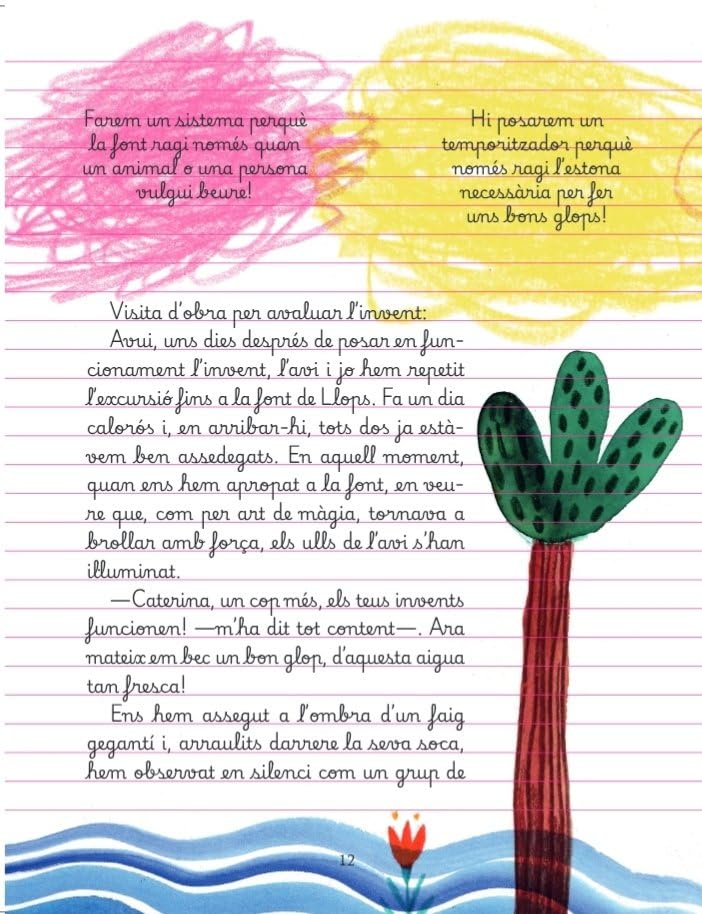 Farem un sistema perquè
la font ragi només quan
un animal o una persona
vulgui beure!
Hi posarem un
temporitzador perquè
només ragi l'estona
necessària per fer
uns bons glops!
Visita d'obra per avaluar l'invent:
Avui, uns dies després de posar en fun-
cionament l'invent, l'avi i jo hem repetit
l'excursió fins a la font de Llops. Fa un dia
calorós i, en arribar-hi, tots dos ja està-
vem ben assedegats. En aquell moment,
quan ens hem apropat a la font, en veu-
re que, com per art de màgia, tornava a
brollar amb força, els ulls de l'avi s'han
il·luminat.
—Caterina, un cop més, els teus invents
funcionen! —m'ha dit tot content—. Ara
mateix em bec un bon glop, d'aquesta aigua
tan fresca!
Ens hem assegut a l'ombra d'un faig
gegantí i, arraulits darrere la seva soca,
hem observat en silenci com un grup de
12